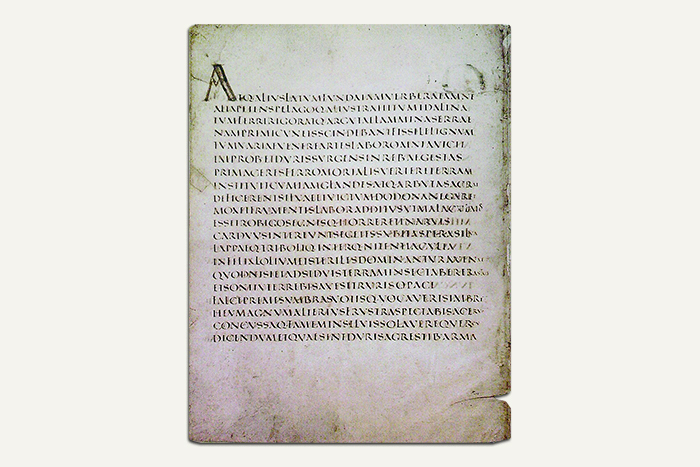 ATQ·ALIVSLATVMFVNDAIAMVERBERATAMNE
ALTAPETENSPELAGOQ·ALIVSTRAHITVMIDALINA
TVMFERRIRIGORATQ·ARGVTAELAMMINASERRAE
NAMPRIMICVNEISSCINDEBANTFISSILELIGNVM
TVMVARIAEVENEREARTESLABOROMNIAVICIT
IMPROBETDVRISVRGENSINREBAEGESTAS
PRIMACERESFERROMORTALISVERTERETERRAM
INSTITVITCVMIAMGLANDESATQ·ARBVTASACRAE
DEFICERENTSILVAEETVICTVMDODONANEGARET
MOXETFRVMENTISLABORADDITVSVTMALACVLMOS
ESSETROBIGOSEGNISQ·HORRERETINARVIS
CARDVVSINTEREVNTSEGETESSVBITASPERASILVA
LAPPAEQ·TRIBOLIQ·INTERQ·NITENTIACVLTA
INFELIXLOLIVMETSTERILESDOMINANTVRAVENAE
QVODNISIETADSIDVISTERRAMINSECTABERERASTRIS
ETSONITVTERREBISAVESETRVRISOPACI
FALCEPREMESVMBRASVOTISQ·VOCAVERISIMBRE
HEVMAGNVMALTERIVSFRVSTRASPECTABISACERVVM
CONCVSSAQ·FAMEMINSILVISSOLAVEREQVERCV
DICENDVMETQVAESINTDVRISAGRESTIBVARMA